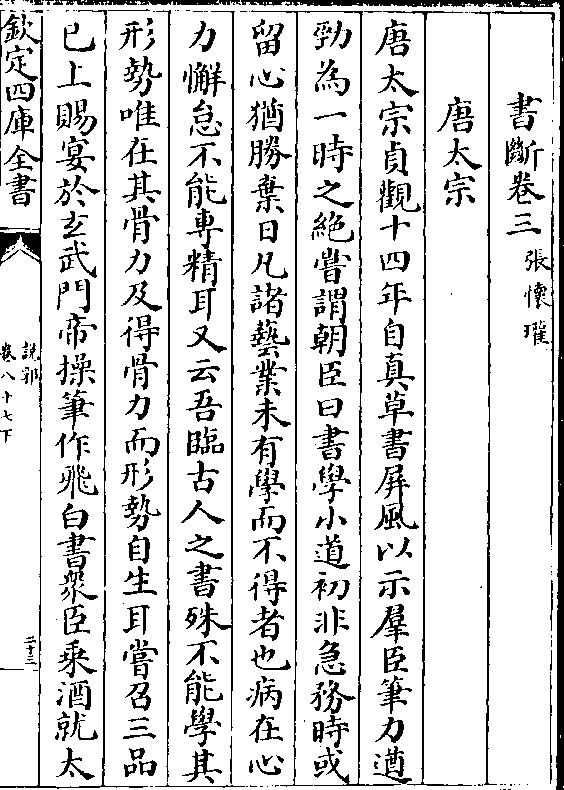 書斷卷三張懷瓘
唐太宗
唐太宗貞觀十四年自真草書屏風以示羣臣筆力遒
勁為一時之絶嘗謂朝臣曰書學小道初非急務時或
留心猶勝棄日凡諸藝業未有學而不得者也病在心
力懈怠不能專精耳又云吾臨古人之書殊不能學其
形勢唯在其骨力及得骨力而形勢自生耳嘗召三品
已上賜宴於玄武門帝操筆作飛白書衆臣乘酒就太
欽定四庫全書
說郛
卷八十七下
二十三